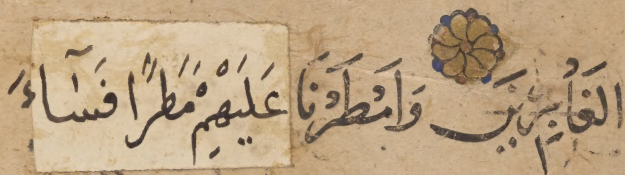 الغَابِرِينَ وَاَمْطَرْنَا عَلَيْهِمْ مَطَرًا فَسَآءَ